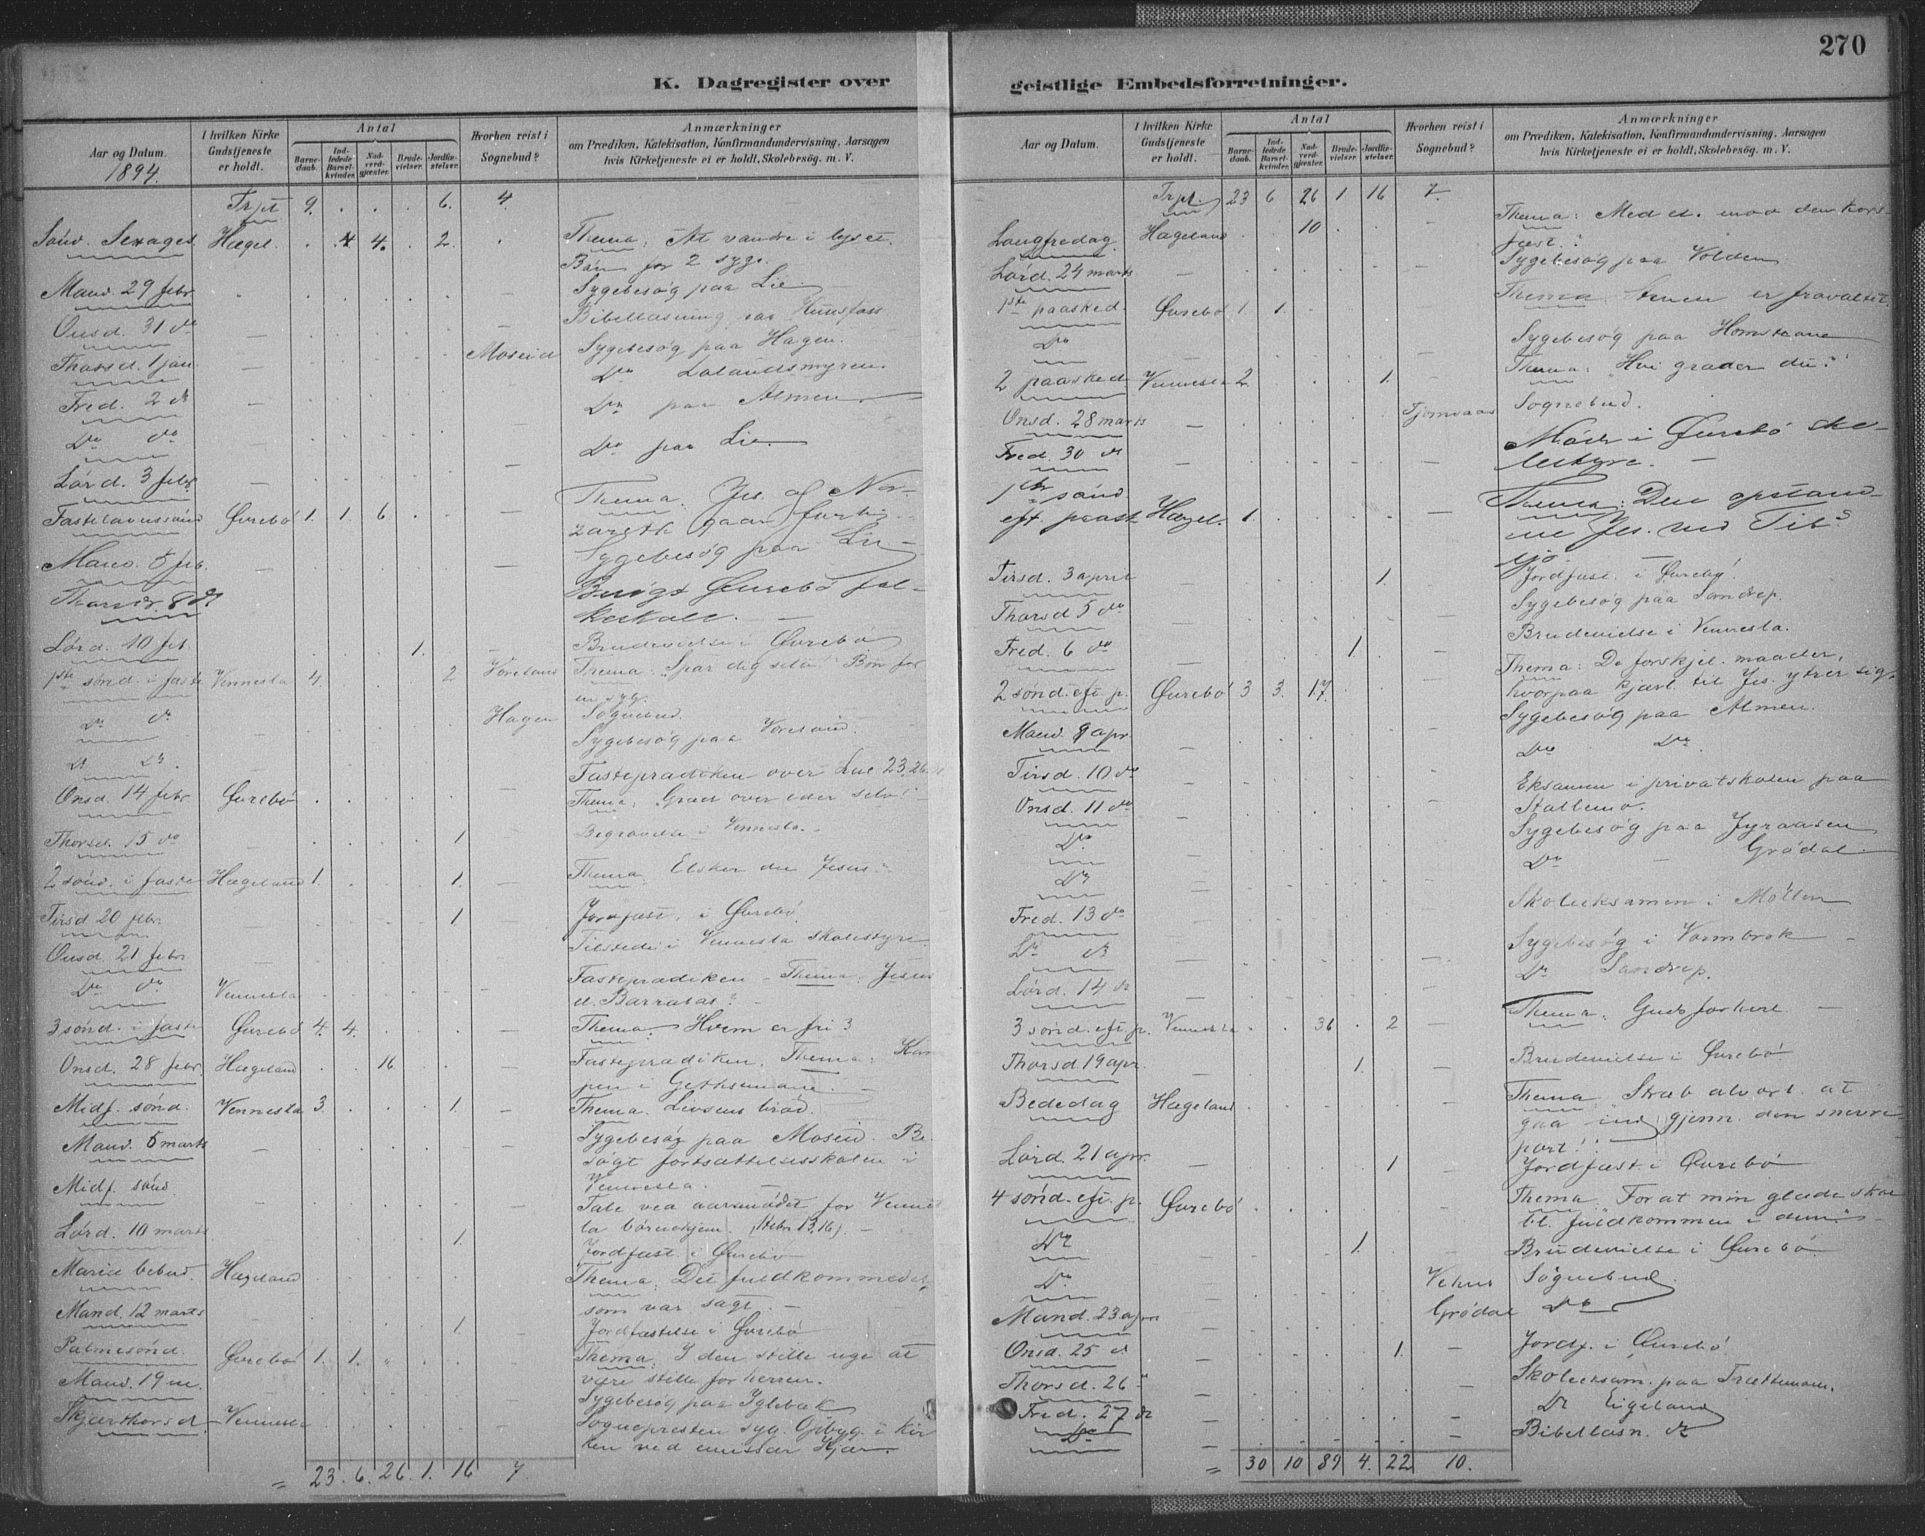 270
K. Dagregister over
geistlige Embedsforretninger.
Aar og Datum.
1894.
I hvilken Kirke
Gudstjeneste
er holdt.
Antal
Barne-
daab.
Ind-
ledede
Barsel-
kvinder.
Nad-
verd-
gjæster.
Brude-
vielser.
Jordfæ-
stelser.
Hvorhen reist i
Sognebud?
Anmærkninger
om Prædiken, Katekisation, Konfirmandundervisning, Aarsagen
hvis Kirketjeneste ei er holdt, Skolebesøg. m. V.
Trpt 9. . . . 6. 4.
Sønd. Sexages Hægel. . 4. . 2. . Thema: At vandre i lyset.
Bøn for 2 syge.
Mand. 29 febr Sygebesøg paa Lie
Onsd. 31 do Bibellæsning paa
Thorsd. 1 jan. Moseid Sygebesøg paa Hagen.
Fred. 2 do Do
Do do Do paa Almen
Lørd. 3 febr. Do paa Lie
Fastelavnssønd Øvrebø 1. 1. 6 Thema: Jes. af Na-
zareth gaar forbi.
Mand. 5 feb. Sygebesøg paa Lie
Thorsd. 8 do Besøgt Øvrebø fol-
keskole.
Lørd. 10 feb 1. Brudevielse i Øvrebø
1ste sønd. i faste Vennesla 4. 2 Thema: Spar dig selv! Bøn for
en syg.
Do do Hagen Sognebud.
Do do. Sygebesøg paa
Onsd. 14 febr Øvrebø Fasteprædiken over Luc 23,26
Thema: Græd over eder selv!
Thorsd. 15 do 1 Begravelse i Vennesla.
2 sønd. i faste Hægeland 1. 1. Thema: Elsker du Jesus?
Tirsd 20 febr. 1 Jordfæst. i Øvrebø.
Onsd. 21 febr Tilstede i Vennesla skolestyre.
Do do Vennesla Fasteprædiken – Thema: Jesus
el. Barrabas?
3 sønd. i faste Øvrebø 4. 4. Thema: Hvem er fri?
Onsd. 28 febr. Hægeland 16 Fasteprædiken. Thema: Kam
pen i Gethsemane.
Midf. sønd. Vennesla 3. 1. Thema: Livsens brød.
Mand. 5 marts Sygebesøg paa Moseid. Be-
søgt fortsættelsesskolen i
Vennesla.
Midf. sønd. Tale ved aarsmødet for Vennes
la børnehjem. (Hebr. 13,16).
Lørd. 10 marts 1. Jordfæst. i Øvrebø
Mariæ bebud. Hægeland Thema: Det fuldkommedes,
som var sagt.
Mand. 12 marts 1. Jordfæstelse i Øvrebø
Palmesønd. Øvrebø 1. 1. Thema: I den stille uge at
være stille for herren.
Mand. 19 m. Sygebesøg paa
Skjærthorsd Vennesla Sognepresten syg. Opbyg. i kir
ken ved emissær
= 23. 6. 26. 1. 16 7
Aar og Datum.
I hvilken Kirke
Gudstjeneste
er holdt.
Antal
Barne-
daab.
Ind-
ledede
Barsel-
kvinder.
Nad-
verd-
gjæster.
Brude-
vielser.
Jordfæ-
stelser.
Hvorhen reist i
Sognebud?
Anmærkninger
om Prædiken, Katekisation, Konfirmandundervisning, Aarsagen
hvis Kirketjeneste ei er holdt, Skolebesøg. m. V.
Trpt. 23 6 26 1. 16 7.
Langfredag Hægeland 10 Thema: Med el. mod den kors-
fæst.?
Lørd. 24 marts Sygebesøg paa Volden
1ste paasked. Øvrebø 1. 1. Thema: Stenen er fravæltet.
Do Sygebesøg paa
2 paasked. Vennesla 2. 1. Thema: Hvi græder du?
Onsd. 28 marts Sognebud.
Fred. 30 do Møde i Øvrebø sko-
lestyre.
1ste sønd
eft paask Hægel. 1. Thema: Den opstand-
ne Jes. ved Tib.
sjø
Tirsd. 3 april 1. Jordfæst. i Øvrebø.
Thorsd 5 do Sygebesøg paa
Fred. 6 do 1. Brudevielse i Vennesla.
2 sønd. eft. p. Øvrebø 3 3. 17. Thema: De forskjel. maader,
hvorpaa kjærl. til Jes. ytrer sig.
Mand. 9 apr. Sygebesøg paa Almen.
Tirsd. 10 do Do Do
Onsd. 11 do Eksamen i privatskolen paa
Stallemo.
Do. Sygebesøg paa
Do Do Grødal
Fred. 13 do Skoleeksamen i
Do do Sygebesøg i
Lørd. 14 do Do
3 sønd. eft. p. Vennesla 36 2 Thema:
Thorsd 19 apr. 1. Brudevielse i Øvrebø
Bededag Hægeland Thema: Stræb alvorl. at
gaa ind gjenn. den snevre
port!
Lørd. 21 apr. 1 Jordfæst. i Øvrebø
4 sønd. eft. p. Øvrebø Thema: For at min glæde skal
bl. fuldkommen i dem
Do 1. Brudevielse i Øvrebø
Do. Vehus Sognebud
Mand. 23 apr. Grødal Do
Onsd. 25 do 1. Jordf. i Øvrebø.
Thorsd. 26 " Skoleeksam. paa
Fred. 27 do Do Eigeland
Do Bibellæsn. do
= 30 10 89 4. 22 10.